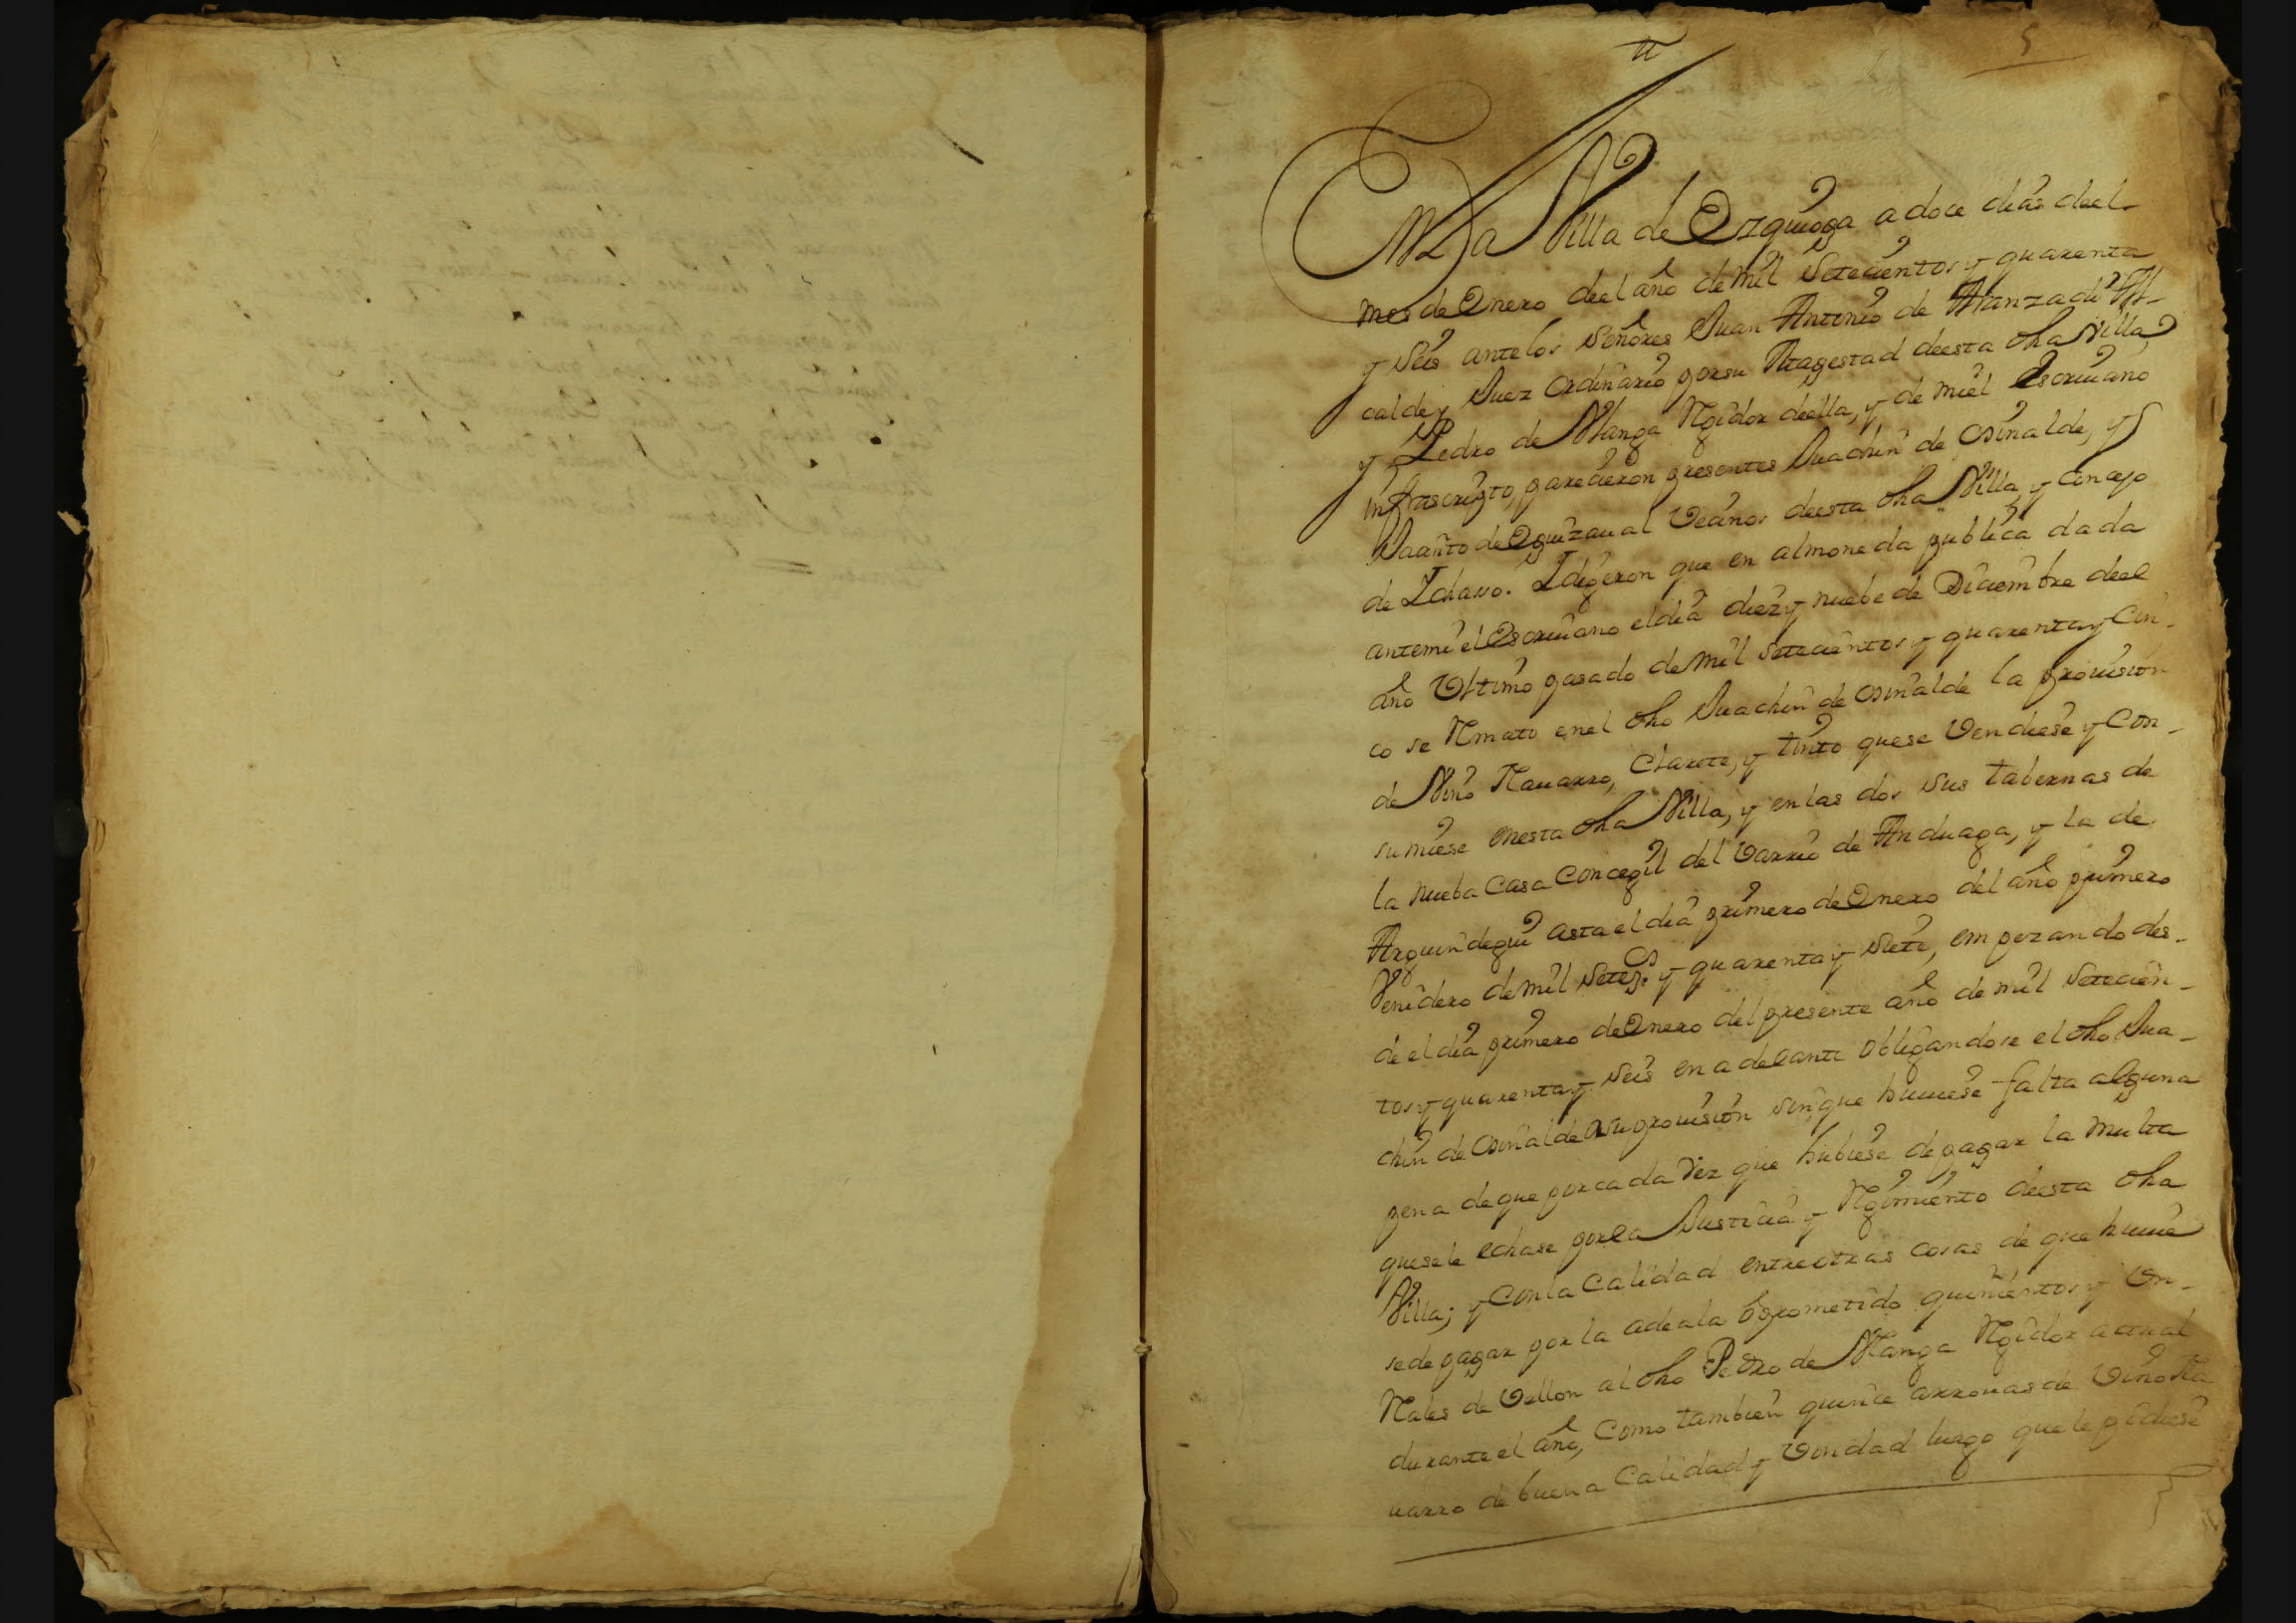 5
En la Villa de Ezquioga a doce dias deel
mes de Enero deel año de mil Setecientos y quarenta
y Seis antelos Señores Juan Antonio de Aranzadi Al-
calde y Juez ordinario por su Magestad deesta dha Villa,
y Pedro de Alanga Rexidor deella, y de mi el Escriuano
infrascripto, parecieron presentes Juachin de Osinalde, y
Jacinto de Eguizaual Vecinos deesta dha Villa, y Concejo
de Ichasso. I digeron que en almoneda publica dada
antemi el Escriuano el dia diez y nuebe de Diciembre deel
año Vltimo pasado de mil setecientos y quarenta y Cin-
co se Rmato enel dho Juachin de Osinalde la prouision
de Vino Nauarro, Clarete, y tinto quese Vendiese y Con-
sumiese enesta dha Villa, y en las dos sus tabernas de
la nueba Casa Concegil del Varrio de Anduaga, y la de
Arguindegui asta el dia primero de Enero del año primero
Venidero de mil Setezs. y quarenta y Siete, empezando des-
de el dia primero de Enero del presente año de mil Setecien-
tos y quarenta y Seis en adelante obligandose el dho Jua-
chin de Osinalde a su prouision sin que huuiese falta alguna
pena de que por cada Vez que hubiese de pagar la multa
quesele echase por la Justicia y Rgimiento deesta dha
Villa; y Con la Calidad entre otras cosas de que huuie
se de pagar por la adeala o prometido quinientos y Vn
Rales de Vellon al dho Pedro de Alanga Rgidor actual
durante el año, Como tambien quince arrouas de Vino Na
uarro de buena Calidad y Vondad luego que le pidiese